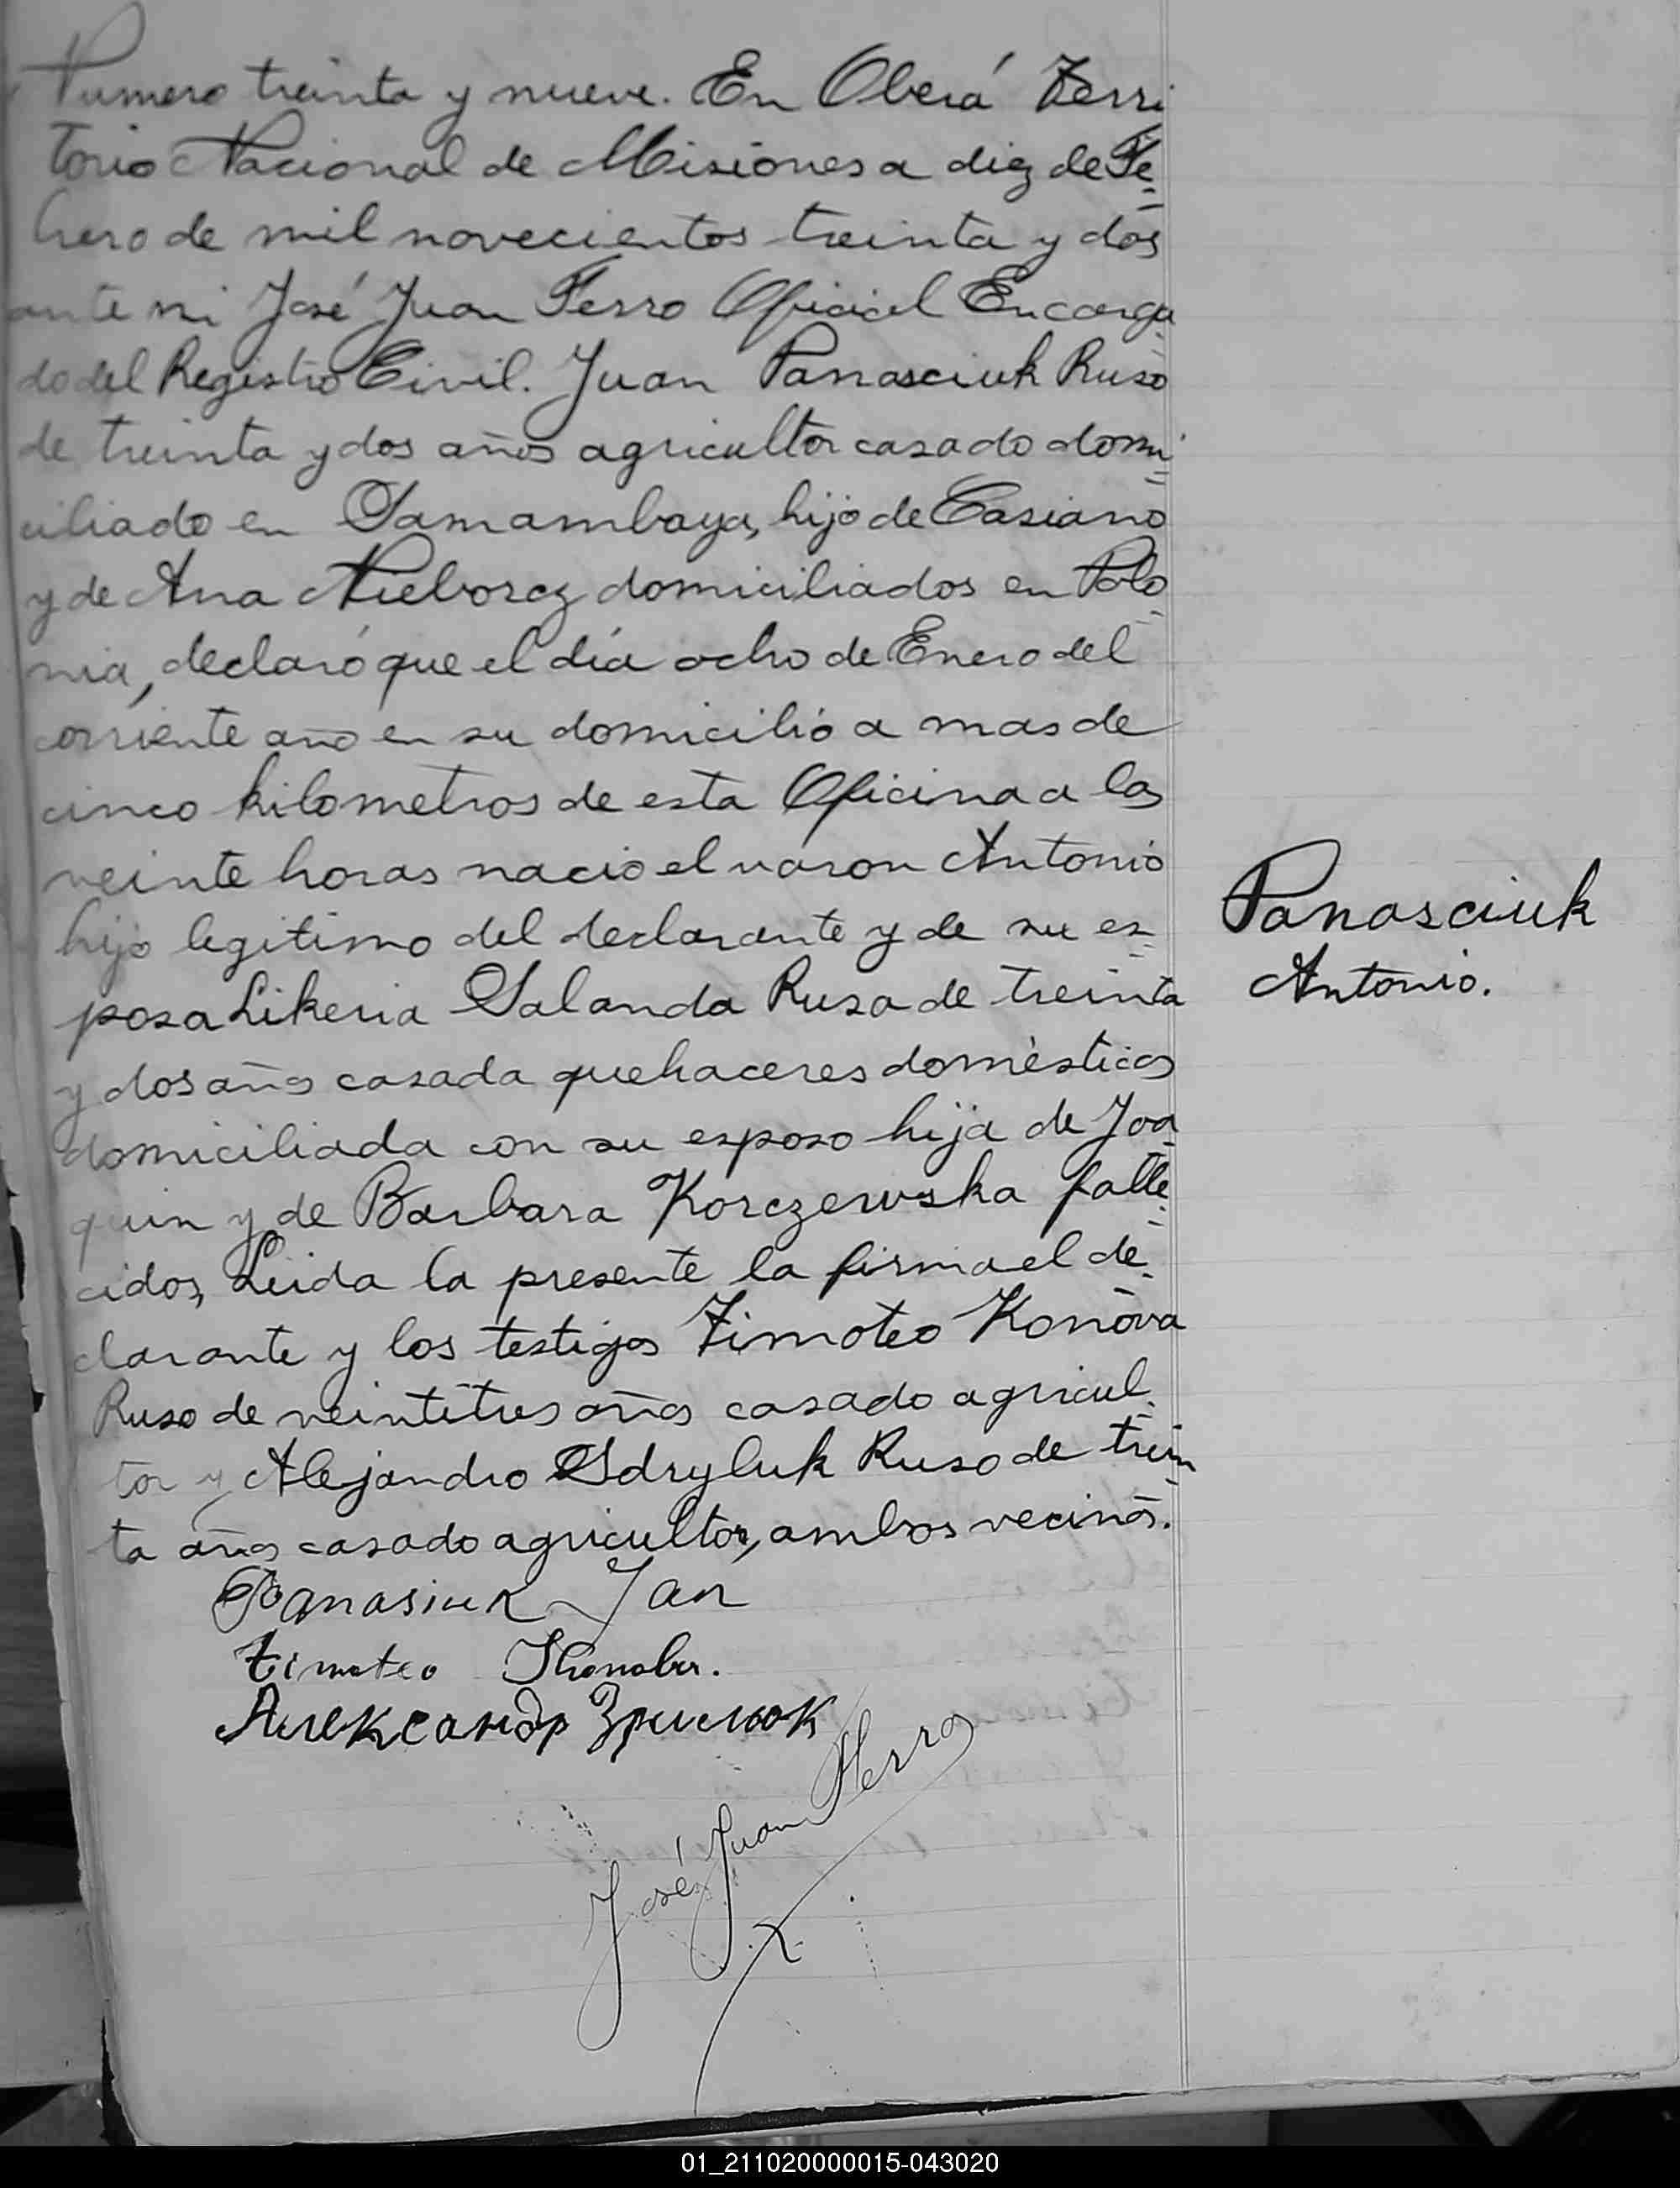 Numero treinta y nueve. En Oberá Terri
torio Nacional de Misiones a diez de Fe=
brero de mil novecientos treinta y dos
ante mi José Juan Ferro Oficial Encarga
do del Registro Civil. Juan Panasciuk Ruso
de treinta y dos años agricultor casado domi=
ciliado en Samambaya, hijo de Casiano
y de Ana Nieborcz domiciliados en Polo=
nia, declaró que el día ocho de Enero del
corriente año en su domicilio a mas de
cinco kilometros de esta Oficina a las
veinte horas nacio el varon Antonio
hijo legitimo del declarante y de su es=
posa Likeria Salanda Rusa de treinta
y dos años casada quehaceres domésticos
domiciliada con su esposo hija de Joa=
quin y de Barbara Korczewska falle=
cidos, Leida la presente la firma el de=
clarante y los testigos Timoteo Konova
Ruso de veintitres años casado agricul=
tor y Alejandro Sdryluk Ruso de trein=
ta años casado agricultor, ambos vecinos.
Panasciuk
Antonio.
Panasiuk Jan
Timoteo
Александр Зрилюк
José Juan Ferro
01_211020000015-043020